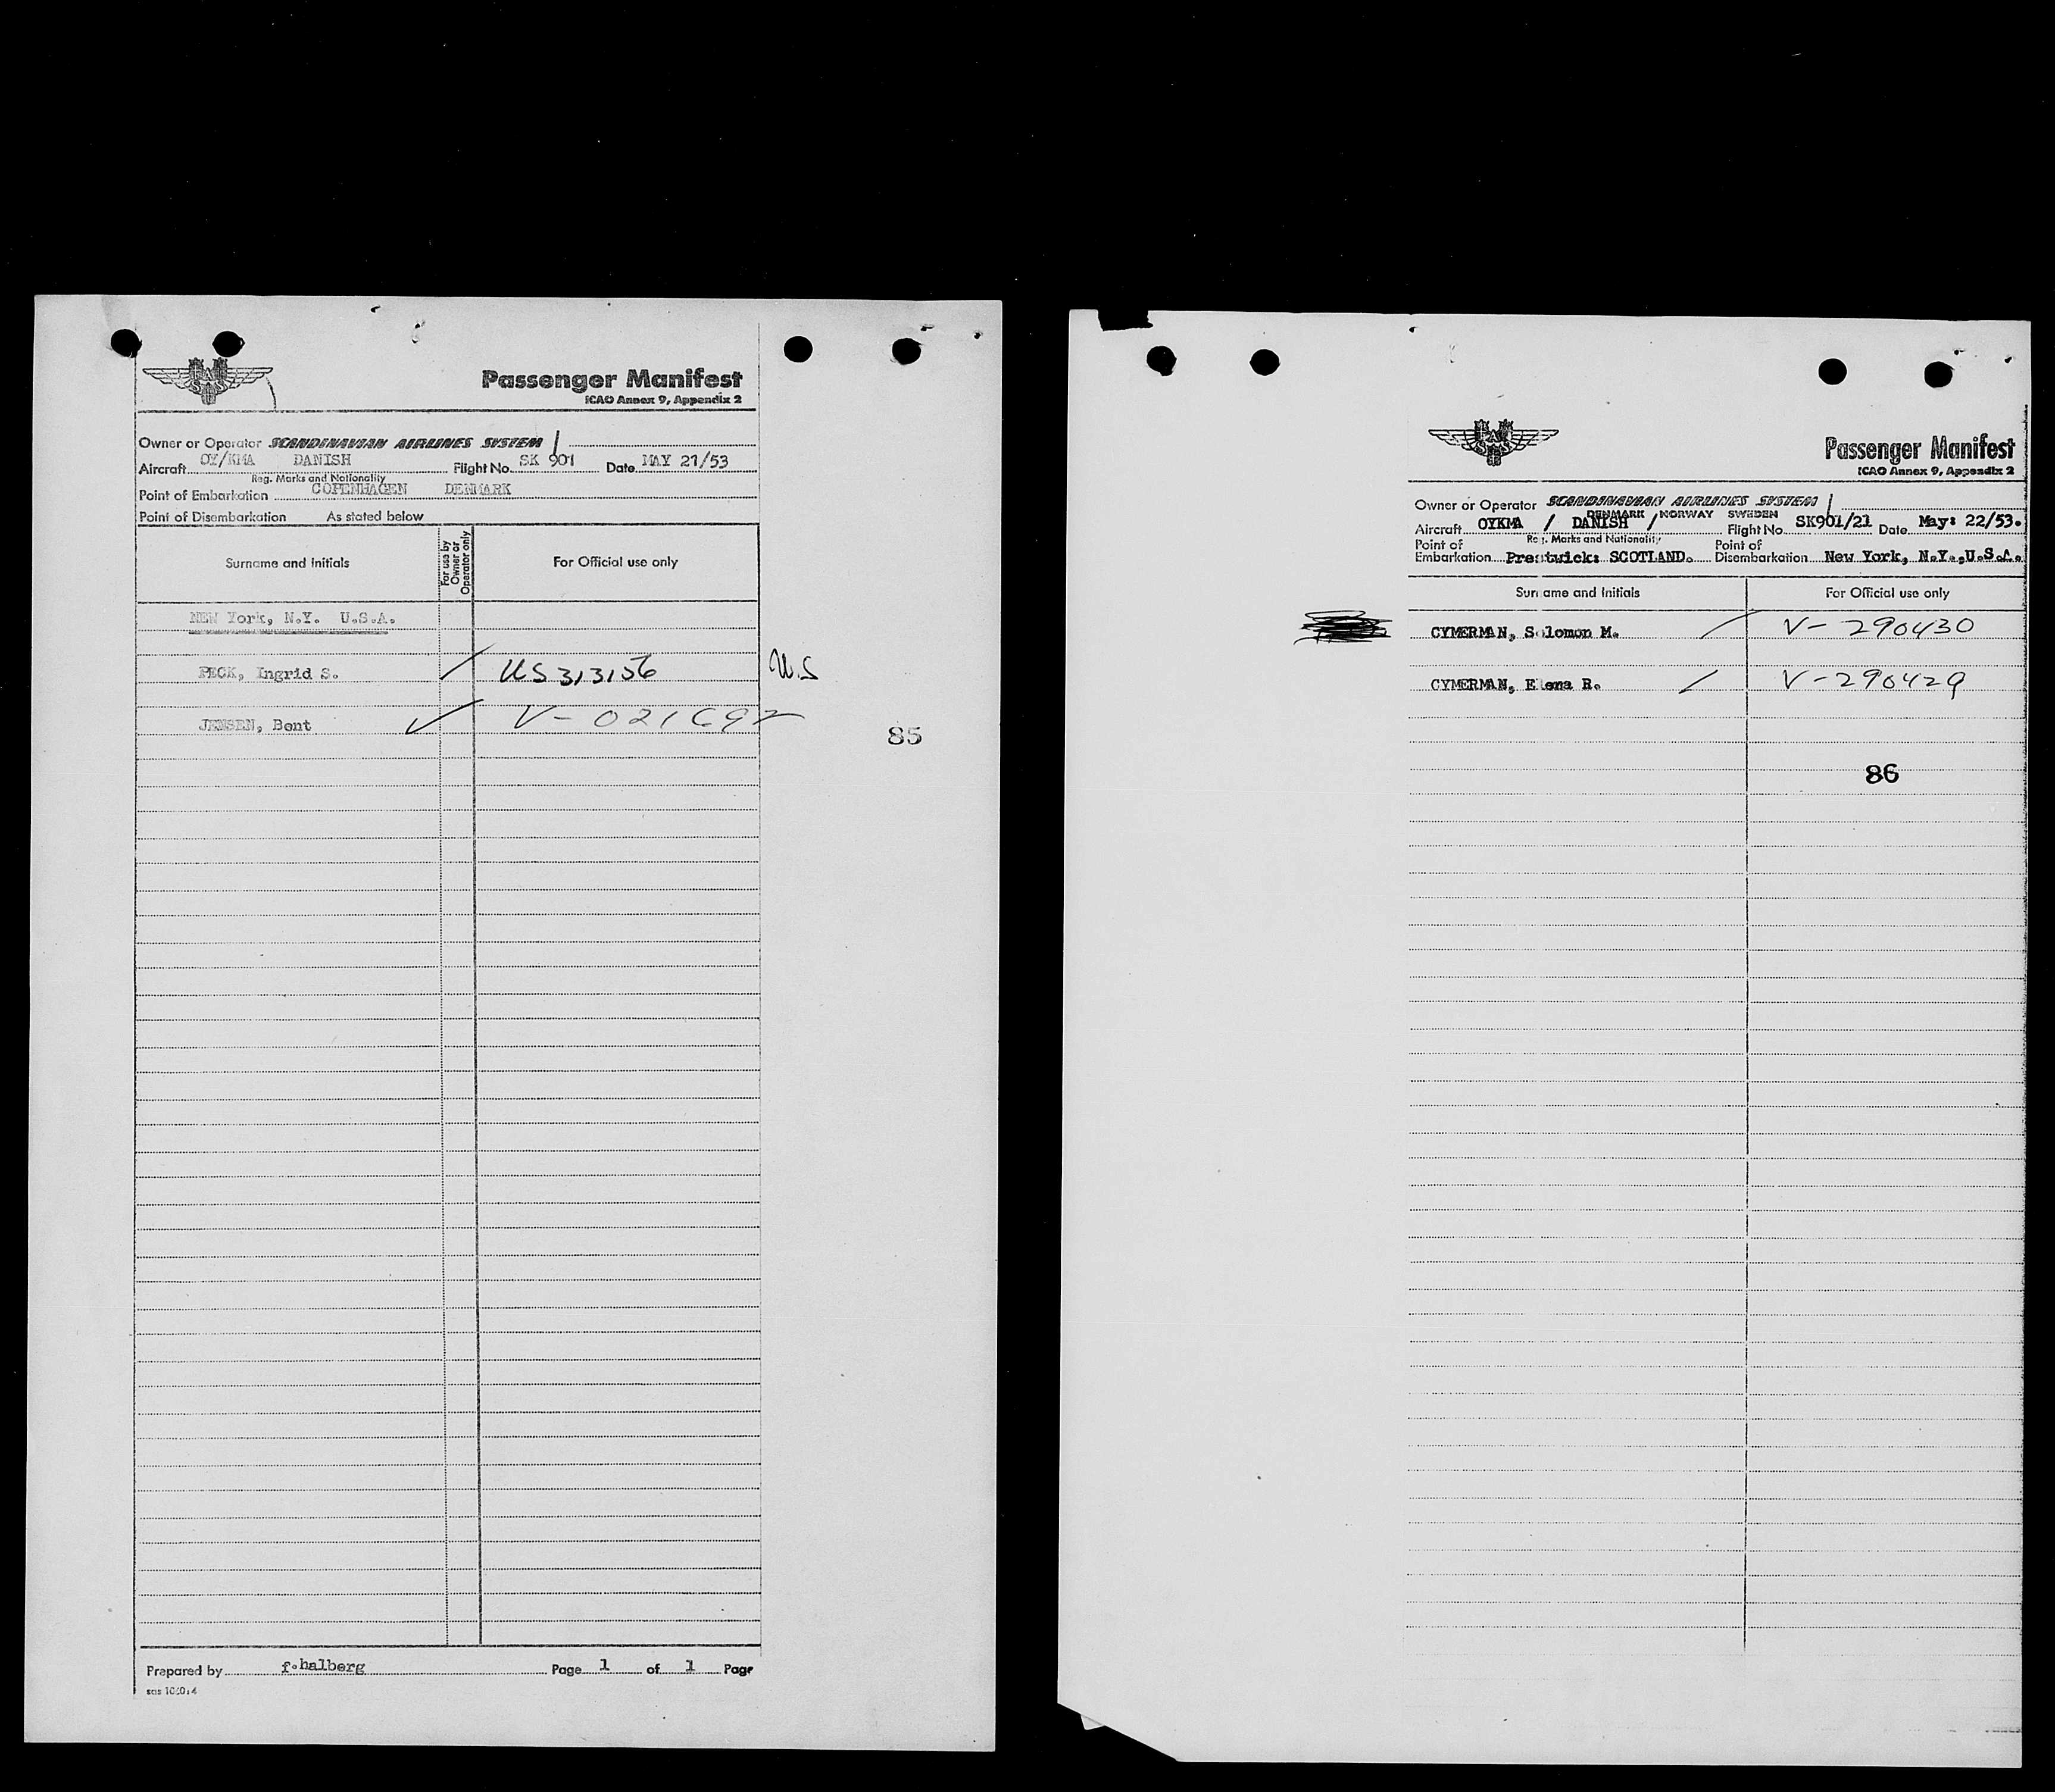 Passenger Manifest
ICAO Annex 9, Appendix 2
Owner or Operator SCANDINAVIAN AIRLINES SYSTEM
Aircraft OY/KMA DANISH Flight No. SK 901 Date MAY 21/53
Reg. Marks and Nationality
Point of Embarkation COPENHAGEN DENMARK
Point of Disembarkation As stated below
Surname and Initials For use by Owner or Operator only For Official use only
NEW York, N.Y. U.S.A.
PECK, Ingrid S. / US 313156 U.S
JENSEN, Bent ✓ V-021692
85
Prepared by f.halberg Page 1 of 1 Page
Passenger Manifest
ICAO Annex 9, Appendix 2
Owner or Operator SCANDINAVIAN AIRLINES SYSTEM
DENMARK / NORWAY SWEDEN
Aircraft OYKMA / DANISH / Flight No. SK901/21 Date May: 22/53.
Reg. Marks and Nationality
Point of Embarkation Prestwick: SCOTLAND. Point of Disembarkation New York, N.Y.,U.S.A.
Surname and Initials For Official use only
CYMERMAN, Solomon M. / V-290430
CYMERMAN, Elena R. / V-290429
86